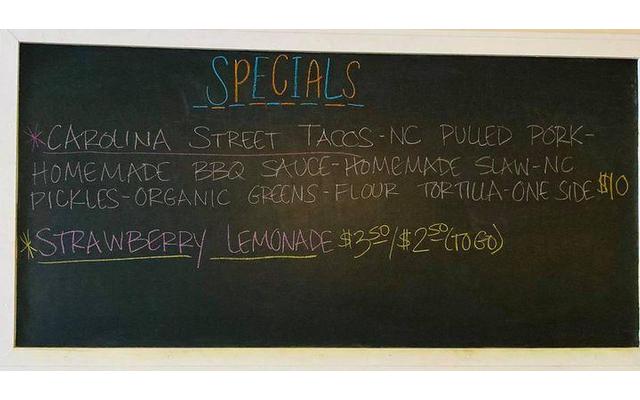 SPECIALS
*CAROLINA STREET TACOS-NC PULLED PORK-
HOMEMADE BBQ SAUCE-HOMEMADE SLAW-NC
PICKLES-ORGANIC GREENS-FLOUR TORTILLA-ONE SIDE $10
*STRAWBERRY LEMONADE $3.50/$2.50(TO GO)